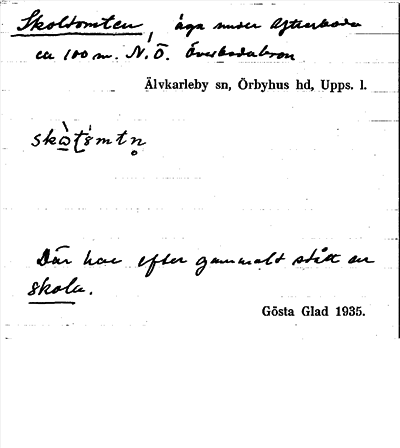 Skoltomten, äga under Åfterboda
ca 100 m. N.Ö. Överbodabron
Älvkarleby sn, Örbyhus hd, Upps. l.
Där har efter gammalt stått en
skola.
Gösta Glad 1935.